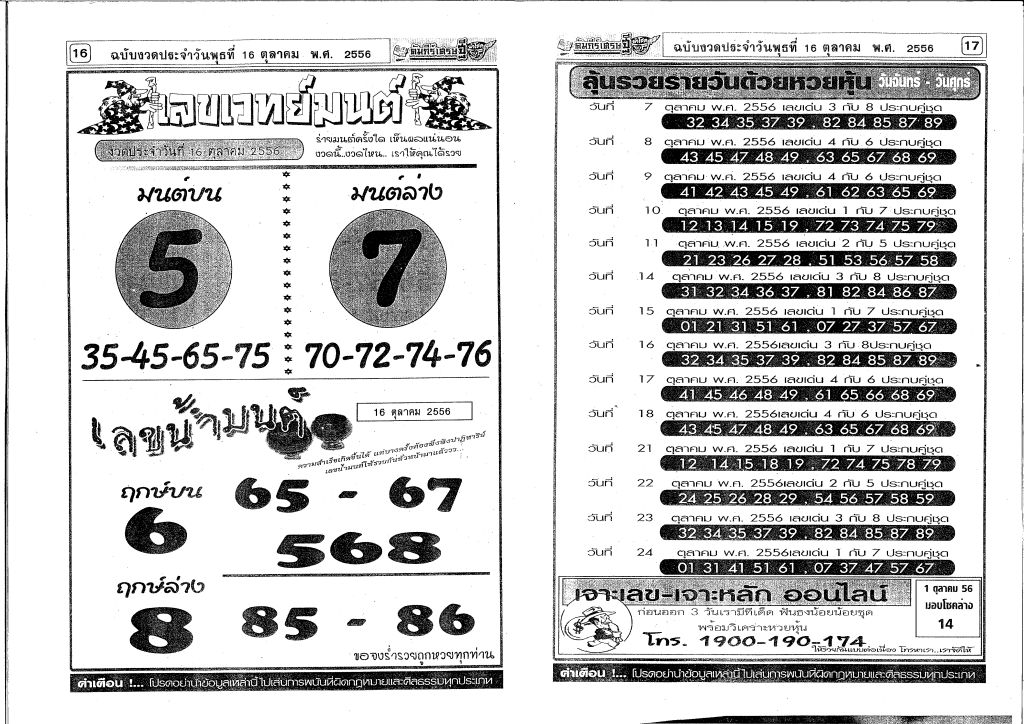 16
ฉบับงวดประจำวันพุธที่ 16 ตุลาคม พ.ศ. 2556
คัมภีร์เศรษฐี
เลขเวทย์มนต์
งวดประจำวันที่ 16 ตุลาคม 2556
ร่ายมนต์ครั้งใด เห็นผลแน่นอน
งวดนี้..งวดไหน.. เราให้คุณได้รวย
มนต์บน
5
35-45-65-75
มนต์ล่าง
7
70-72-74-76
เลขน้ำมนต์
16 ตุลาคม 2556
ความสำเร็จเกิดขึ้นได้ แต่บางครั้งต้องพึ่งพิงปาฏิหาริย์
เลขน้ำมนต์ให้รวยกันถ้วนหน้ามาแล้ววว...
ฤกษ์บน
6
65 - 67
568
ฤกษ์ล่าง
8
85 - 86
ขอจงร่ำรวยถูกหวยทุกท่าน
คำเตือน !... โปรดอย่านำข้อมูลเหล่านี้ไปเล่นการพนันที่ผิดกฎหมายและศีลธรรมทุกประเภท
คัมภีร์เศรษฐี
ฉบับงวดประจำวันพุธที่ 16 ตุลาคม พ.ศ. 2556
17
ลุ้นรวยรายวันด้วยหวยหุ้น วันจันทร์ - วันศุกร์
วันที่ 7 ตุลาคม พ.ศ. 2556 เลขเด่น 3 กับ 8 ประกบคู่ชุด
32 34 35 37 39 . 82 84 85 87 89
วันที่ 8 ตุลาคม พ.ศ. 2556 เลขเด่น 4 กับ 6 ประกบคู่ชุด
43 45 47 48 49 . 63 65 67 68 69
วันที่ 9 ตุลาคม พ.ศ. 2556 เลขเด่น 4 กับ 6 ประกบคู่ชุด
41 42 43 45 49 . 61 62 63 65 69
วันที่ 10 ตุลาคม พ.ศ. 2556 เลขเด่น 1 กับ 7 ประกบคู่ชุด
12 13 14 15 19 . 72 73 74 75 79
วันที่ 11 ตุลาคม พ.ศ. 2556 เลขเด่น 2 กับ 5 ประกบคู่ชุด
21 23 26 27 28 . 51 53 56 57 58
วันที่ 14 ตุลาคม พ.ศ. 2556 เลขเด่น 3 กับ 8 ประกบคู่ชุด
31 32 34 36 37 . 81 82 84 86 87
วันที่ 15 ตุลาคม พ.ศ. 2556 เลขเด่น 1 กับ 7 ประกบคู่ชุด
01 21 31 51 61 . 07 27 37 57 67
วันที่ 16 ตุลาคม พ.ศ. 2556เลขเด่น 3 กับ 8ประกบคู่ชุด
32 34 35 37 39 . 82 84 85 87 89
วันที่ 17 ตุลาคม พ.ศ. 2556 เลขเด่น 4 กับ 6 ประกบคู่ชุด
41 45 46 48 49 . 61 65 66 68 69
วันที่ 18 ตุลาคม พ.ศ. 2556เลขเด่น 4 กับ 6 ประกบคู่ชุด
43 45 47 48 49 . 63 65 67 68 69
วันที่ 21 ตุลาคม พ.ศ. 2556 เลขเด่น 1 กับ 7 ประกบคู่ชุด
12 14 15 18 19 . 72 74 75 78 79
วันที่ 22 ตุลาคม พ.ศ. 2556 เลขเด่น 2 กับ 5 ประกบคู่ชุด
24 25 26 28 29 . 54 56 57 58 59
วันที่ 23 ตุลาคม พ.ศ. 2556 เลขเด่น 3 กับ 8 ประกบคู่ชุด
32 34 35 37 39 . 82 84 85 87 89
วันที่ 24 ตุลาคม พ.ศ. 2556เลขเด่น 1 กับ 7 ประกบคู่ชุด
01 31 41 51 61 . 07 37 47 57 67
เจาะเลข-เจาะหลัก ออนไลน์
ก่อนออก 3 วันเรามีทีเด็ด ฟันธงน้อยน้อยชุด
พร้อมวิเคราะหวยหุ้น
โทร. 1900-190-174
ให้รวยกันแบบต่อเนื่อง โทรหาเรา..เราจัดให้
1 ตุลาคม 56
มอบโชคล่าง
14
คำเตือน !... โปรดอย่านำข้อมูลเหล่านี้ไปเล่นการพนันที่ผิดกฎหมายและศีลธรรมทุกประเภท